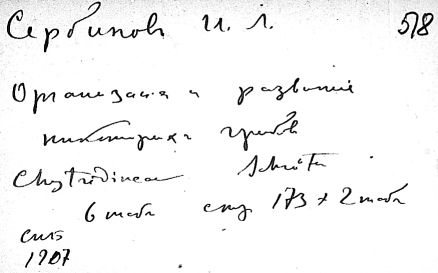 Сербиновъ И. Л. 578
Организация и развитие
некоторых грибов
Chytridineae Schröter
6 табл стр 173 + 2 табл
СПБ
1907